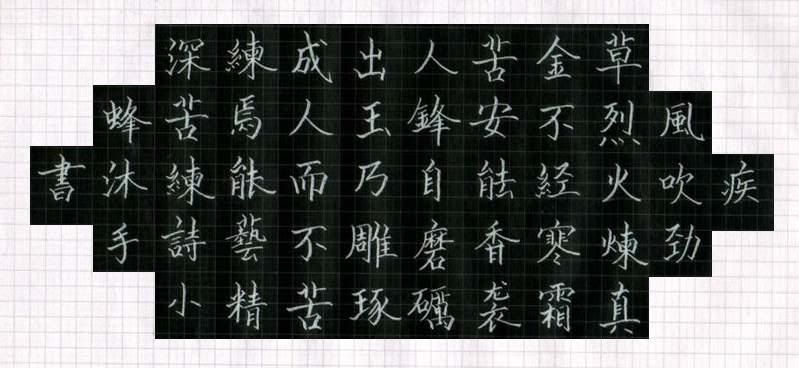 疾
風吹勁
草烈火煉真
金不経寒霜
苦安能香袭
人鋒自磨礪
出玉乃雕琢
成人而不苦
練焉能藝精
深苦練詩小
蜂沐手
書